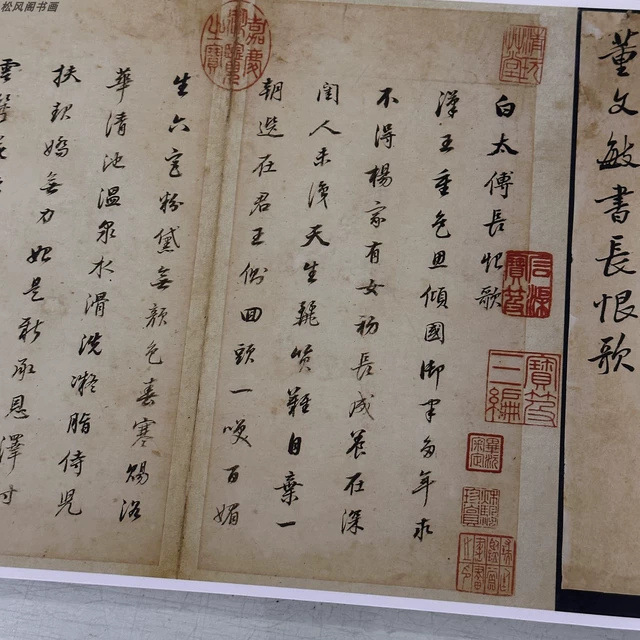 松风阁书画
董文敏書長恨歌
白太傅長恨歌
漢王重色思傾國御宇多年求
不得楊家有女初長成養在深
閨人未識天生麗質難自棄一
朝選在君王側回頭一笑百媚
生六宮粉黛無顏色春寒賜浴
華清池溫泉水滑洗凝脂侍兒
扶起嬌無力始是新承恩澤時
雲鬢
嘉慶御覽之寶
石渠寶笈
寶笈三編